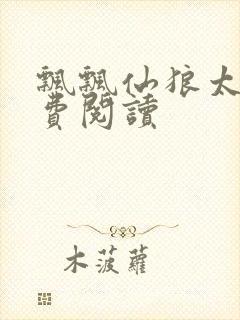 飄飄仙狼太
費閱讀
木菠蘿